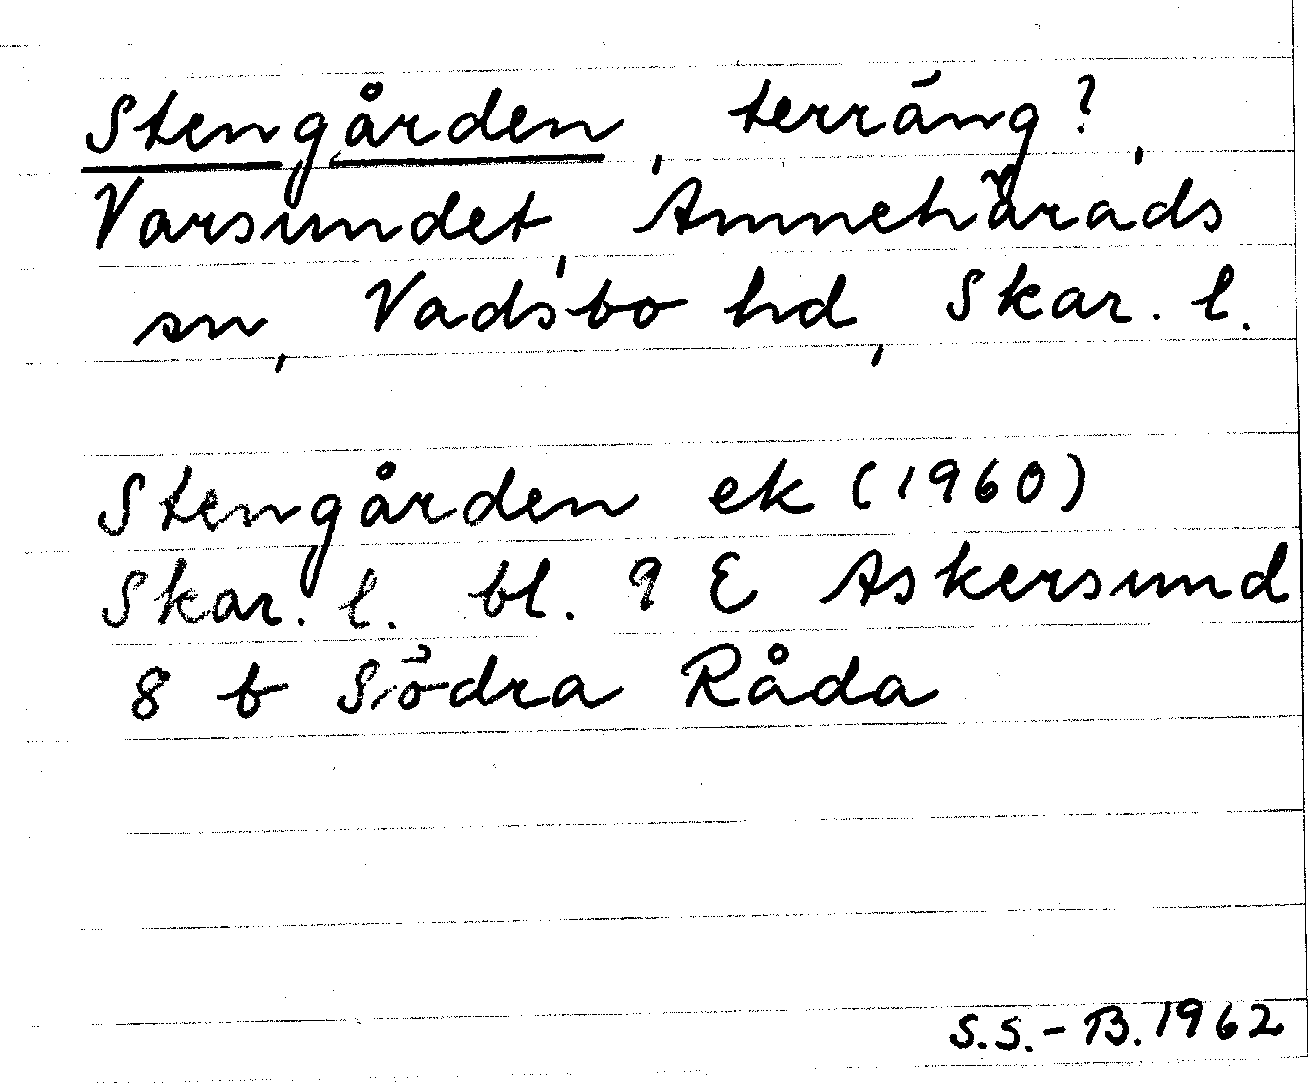 Stengården, terräng?,
Varsundet, Amnehärads
sn, Vadsbo hd, Skar. l.
Stengården ek (1960)
Skar. l. bl. 9 E Askersund
8 b Södra Råda
S.S.-B. 1962